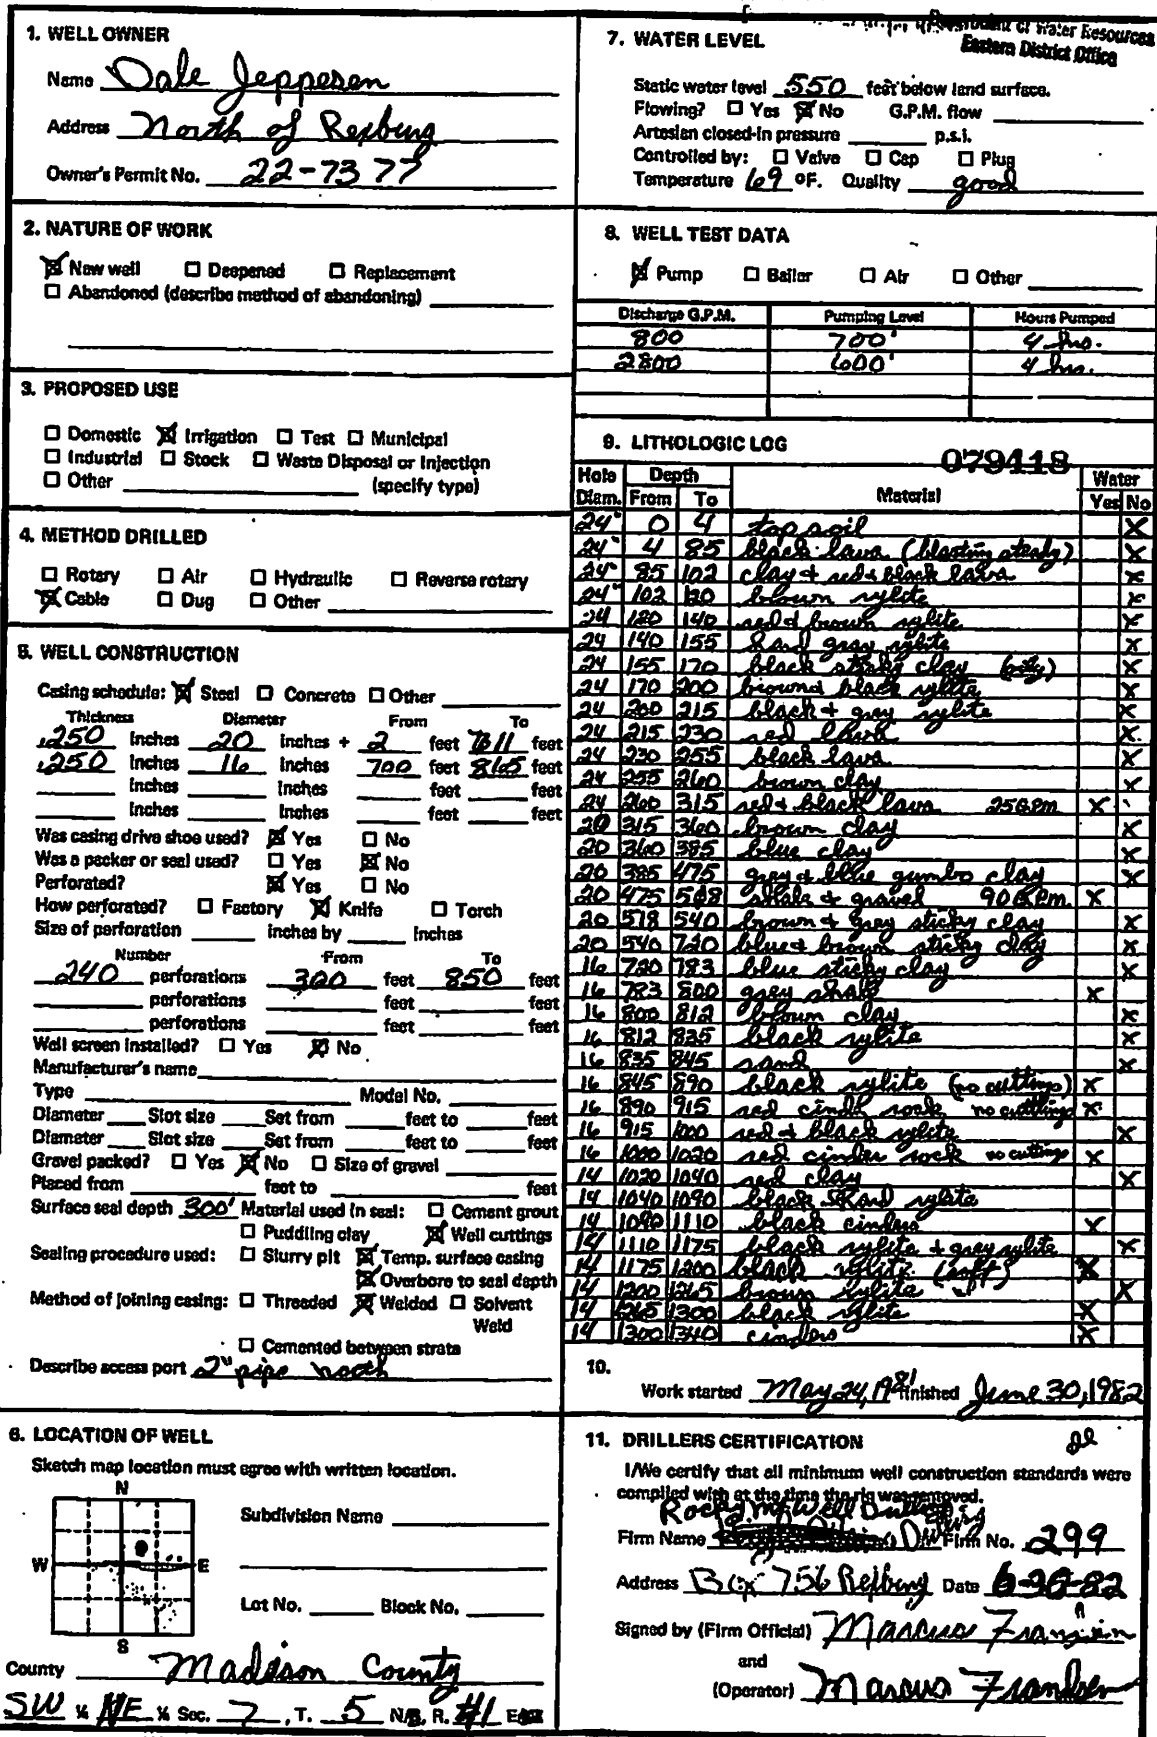 Department of Water Resources
Eastern District Office
1. WELL OWNER
Name Dale Jeppesen
Address North of Rexburg
Owner's Permit No. 22-7377
2. NATURE OF WORK
☒ New well ☐ Deepened ☐ Replacement
☐ Abandoned (describe method of abandoning)
3. PROPOSED USE
☐ Domestic ☒ Irrigation ☐ Test ☐ Municipal
☐ Industrial ☐ Stock ☐ Waste Disposal or Injection
☐ Other (specify type)
4. METHOD DRILLED
☐ Rotary ☐ Air ☐ Hydraulic ☐ Reverse rotary
☒ Cable ☐ Dug ☐ Other
5. WELL CONSTRUCTION
Casing schedule: ☒ Steel ☐ Concrete ☐ Other
Thickness Diameter From To
.250 inches 20 inches + 2 feet feet
.250 inches 16 inches 700 feet 865 feet
inches inches feet feet
inches inches feet feet
Was casing drive shoe used? ☒ Yes ☐ No
Was a packer or seal used? ☐ Yes ☒ No
Perforated? ☒ Yes ☐ No
How perforated? ☐ Factory ☒ Knife ☐ Torch
Size of perforation inches by inches
Number From To
240 perforations 300 feet 850 feet
perforations feet feet
perforations feet feet
Well screen installed? ☐ Yes ☒ No
Manufacturer's name
Type Model No.
Diameter Slot size Set from feet to feet
Diameter Slot size Set from feet to feet
Gravel packed? ☐ Yes ☒ No ☐ Size of gravel
Placed from feet to feet
Surface seal depth 300' Material used in seal: ☐ Cement grout
☐ Puddling clay ☒ Well cuttings
Sealing procedure used: ☐ Slurry pit ☒ Temp. surface casing
☒ Overbore to seal depth
Method of joining casing: ☐ Threaded ☒ Welded ☐ Solvent Weld
☐ Cemented between strata
Describe access port 2" pipe north
6. LOCATION OF WELL
Sketch map location must agree with written location.
N
W E
S
Subdivision Name
Lot No. Block No.
County Madison County
SW ¼ NE ¼ Sec. 7, T. 5 N/S, R. 41 E
7. WATER LEVEL
Static water level 550 feet below land surface.
Flowing? ☐ Yes ☒ No G.P.M. flow
Artesian closed-in pressure p.s.i.
Controlled by: ☐ Valve ☐ Cap ☐ Plug
Temperature 69 °F. Quality good
8. WELL TEST DATA
☒ Pump ☐ Bailer ☐ Air ☐ Other
Discharge G.P.M. Pumping Level Hours Pumped
800 700' 4 hrs.
2800 600' 4 hrs.
9. LITHOLOGIC LOG 079418
Hole Diam. Depth From To Material Water Yes No
24" 0 4 top soil X
24" 4 85 black lava (blasting steady) X
24" 85 102 clay & red & black lava X
24" 102 120 brown rylite X
24 120 140 red & brown rylite X
24 140 155 hard gray rylite X
24 155 170 black sticky clay X
24 170 200 brown & black rylite X
24 200 215 black & grey rylite X
24 215 230 red lava X
24 230 255 black lava X
24 255 260 brown clay X
24 260 315 red & black lava 25 GPM X
20 315 360 brown clay X
20 360 385 blue clay X
20 385 475 grey & blue gumbo clay X
20 475 518 shale & gravel 90 GPM X
20 518 540 brown & grey sticky clay X
20 540 720 blue & brown sticky clay X
16 720 783 blue sticky clay X
16 783 800 grey shale X
16 800 812 brown clay X
16 812 835 black rylite X
16 835 845 sand X
16 845 890 black rylite (no cuttings) X
16 890 915 red cinder rock no cuttings X
16 915 1000 red & black rylite X
16 1000 1020 red cinder rock no cuttings X
14 1020 1040 red clay X
14 1040 1090 black hard rylite
14 1090 1110 black cinders X
14 1110 1175 black rylite & grey rylite X
14 1175 1200 black rylite (soft) X
14 1200 1265 brown rylite X
14 1265 1300 black rylite X
14 1300 1340 cinders X
10.
Work started May 24, 1981 finished June 30, 1982
11. DRILLERS CERTIFICATION
I/We certify that all minimum well construction standards were
complied with at the time the rig was removed.
Rocky Mt Well Drilling
Firm Name Firm No. 299
Address Box 756 Rexburg Date 6-30-82
Signed by (Firm Official) Marcus Frandsen
and
(Operator) Marcus Frandsen